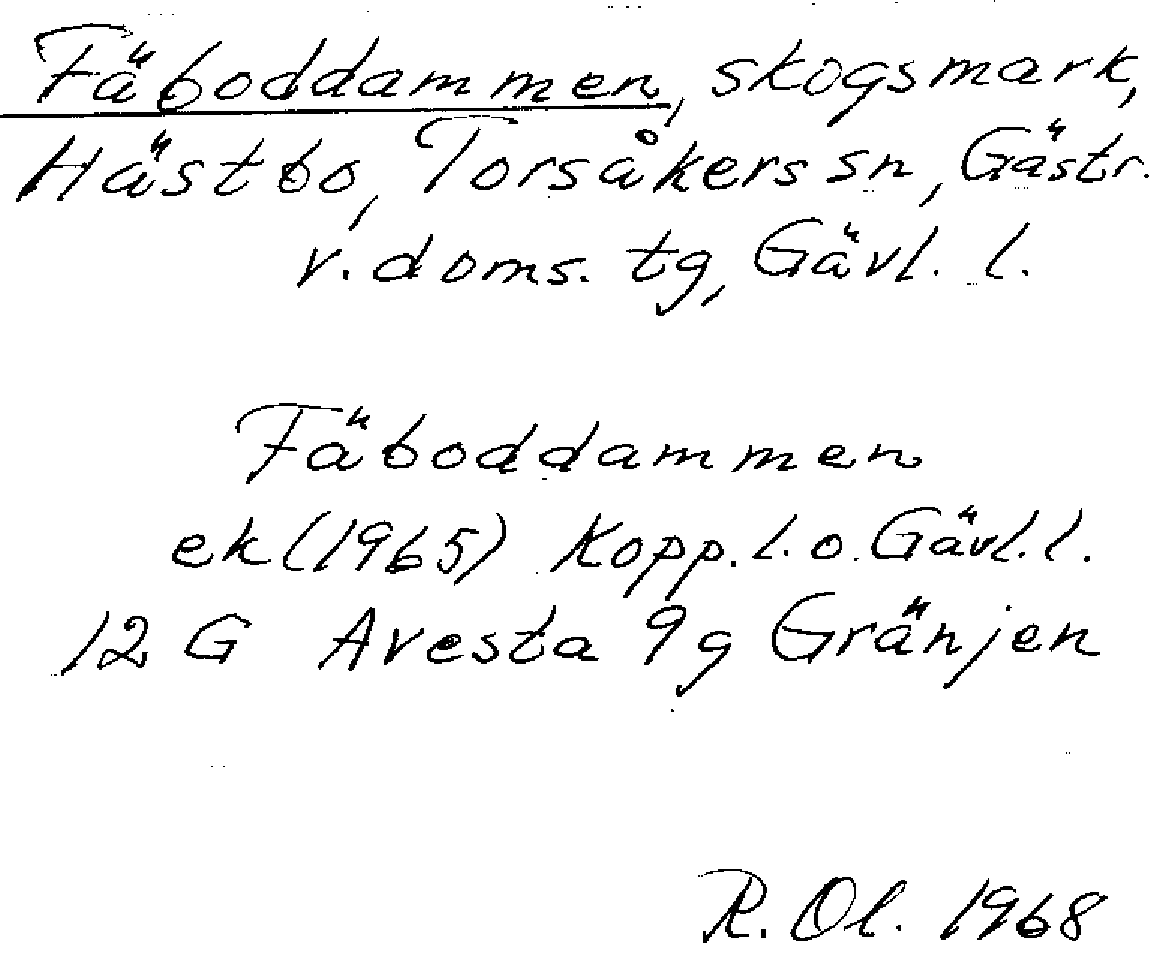 Fäboddammen, skogsmark,
Hästbo, Torsåkers sn, Gästr.
v. doms. tg, Gävl. l.
Fäboddammen
ek (1965) Kopp. l. o. Gävl. l.
12 G Avesta 9g Gränjen
R. Ol. 1968